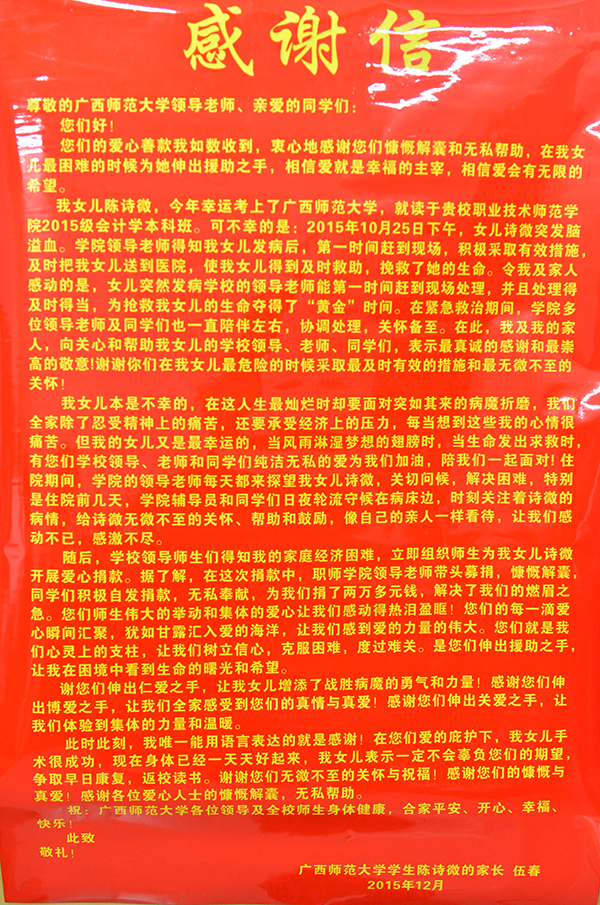 感谢信
尊敬的广西师范大学领导老师、亲爱的同学们：
您们好！
您们的爱心善款我如数收到，衷心地感谢您们慷慨解囊和无私帮助，在我女
儿最困难的时候为她伸出援助之手，相信爱就是幸福的主宰，相信爱会有无限的
希望。
我女儿陈诗微，今年幸运考上了广西师范大学，就读于贵校职业技术师范学
院2015级会计学本科班。可不幸的是：2015年10月25日下午，女儿诗微突发脑
溢血。学院领导老师得知我女儿发病后，第一时间赶到现场，积极采取有效措施，
及时把我女儿送到医院，使我女儿得到及时救助，挽救了她的生命。令我及家人
感动的是，女儿突然发病学校的领导老师能第一时间赶到现场处理，并且处理得
及时得当，为抢救我女儿的生命夺得了“黄金”时间。在紧急救治期间，学院多
位领导老师及同学们也一直陪伴左右，协调处理，关怀备至。在此，我及我的家
人，向关心和帮助我女儿的学校领导、老师、同学们，表示最真诚的感谢和最崇
高的敬意!谢谢你们在我女儿最危险的时候采取最及时有效的措施和最无微不至的
关怀！
我女儿本是不幸的，在这人生最灿烂时却要面对突如其来的病魔折磨，我们
全家除了忍受精神上的痛苦，还要承受经济上的压力，每当想到这些我的心情很
痛苦。但我的女儿又是最幸运的，当风雨淋湿梦想的翅膀时，当生命发出求救时，
有您们学校领导、老师和同学们纯洁无私的爱为我们加油，陪我们一起面对!住
院期间，学院的领导老师每天都来探望我女儿诗微，关切问候，解决困难，特别
是住院前几天，学院辅导员和同学们日夜轮流守候在病床边，时刻关注着诗微的
病情，给诗微无微不至的关怀、帮助和鼓励，像自己的亲人一样看待，让我们感
动不已，感激不尽。
随后，学校领导师生们得知我的家庭经济困难，立即组织师生为我女儿诗微
开展爱心捐款。据了解，在这次捐款中，职师学院领导老师带头募捐，慷慨解囊，
同学们积极自发捐款，无私奉献，为我们捐了两万多元钱，解决了我们的燃眉之
急。您们师生伟大的举动和集体的爱心让我们感动得热泪盈眶！您们的每一滴爱
心瞬间汇聚，犹如甘露汇入爱的海洋，让我们感到爱的力量的伟大。您们就是我
们心灵上的支柱，让我们树立信心，克服困难，度过难关。是您们伸出援助之手，
让我在困境中看到生命的曙光和希望。
谢您们伸出仁爱之手，让我女儿增添了战胜病魔的勇气和力量！感谢您们伸
出博爱之手，让我们全家感受到您们的真情与真爱！感谢您们伸出关爱之手，让
我们体验到集体的力量和温暖。
此时此刻，我唯一能用语言表达的就是感谢！在您们爱的庇护下，我女儿手
术很成功，现在身体已经一天天好起来，我女儿表示一定不会辜负您们的期望，
争取早日康复，返校读书。谢谢您们无微不至的关怀与祝福！感谢您们的慷慨与
真爱！感谢各位爱心人士的慷慨解囊，无私帮助。
祝：广西师范大学各位领导及全校师生身体健康，合家平安、开心、幸福、
快乐！
此致
敬礼！
广西师范大学学生陈诗微的家长 伍春
2015年12月